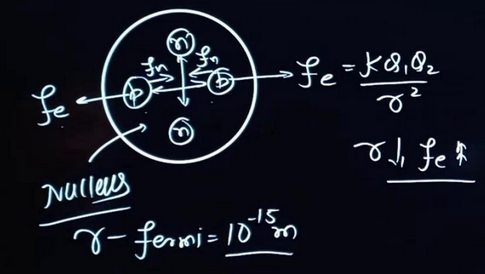 n
fn fn
fe p p fe = KQ₁Q₂/r²
n
r↓ fe↑
Nucleus
r - fermi = 10⁻¹⁵ m